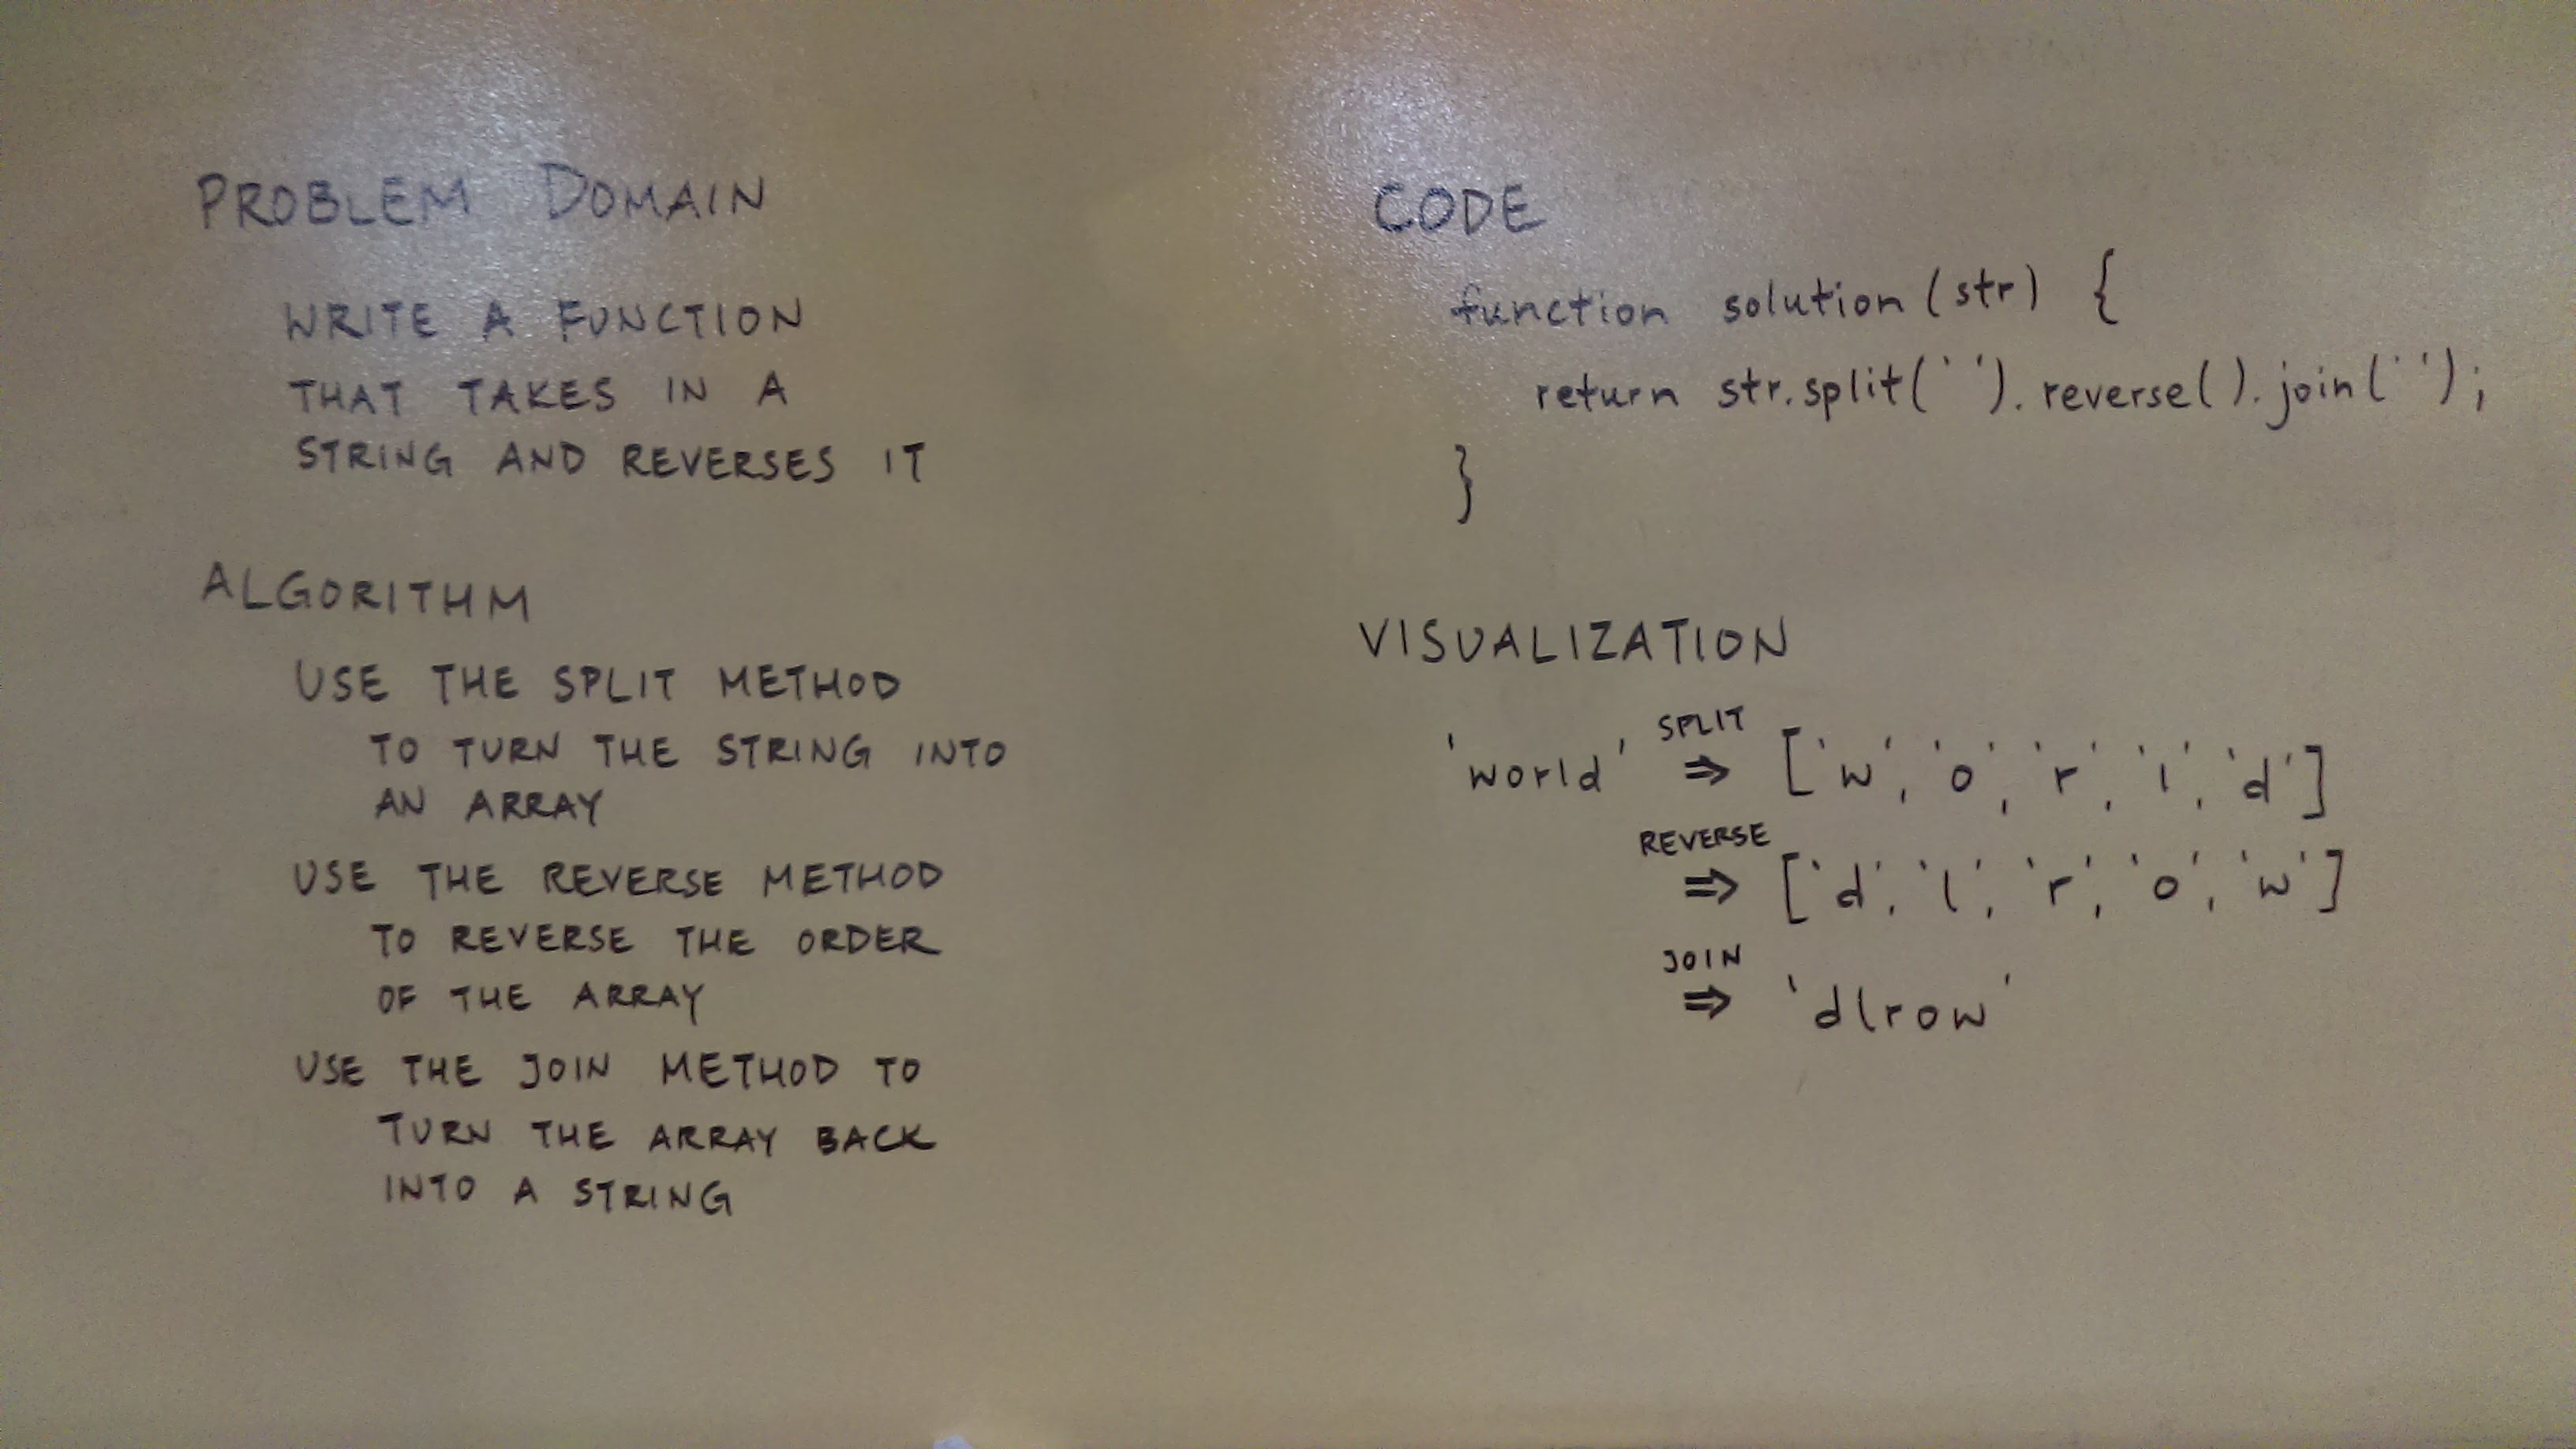 PROBLEM DOMAIN
WRITE A FUNCTION
THAT TAKES IN A
STRING AND REVERSES IT
ALGORITHM
USE THE SPLIT METHOD
TO TURN THE STRING INTO
AN ARRAY
USE THE REVERSE METHOD
TO REVERSE THE ORDER
OF THE ARRAY
USE THE JOIN METHOD TO
TURN THE ARRAY BACK
INTO A STRING
CODE
function solution(str) {
return str.split('').reverse().join('');
}
VISUALIZATION
SPLIT
'world' ⇒ ['w', 'o', 'r', 'l', 'd']
REVERSE
⇒ ['d', 'l', 'r', 'o', 'w']
JOIN
⇒ 'dlrow'